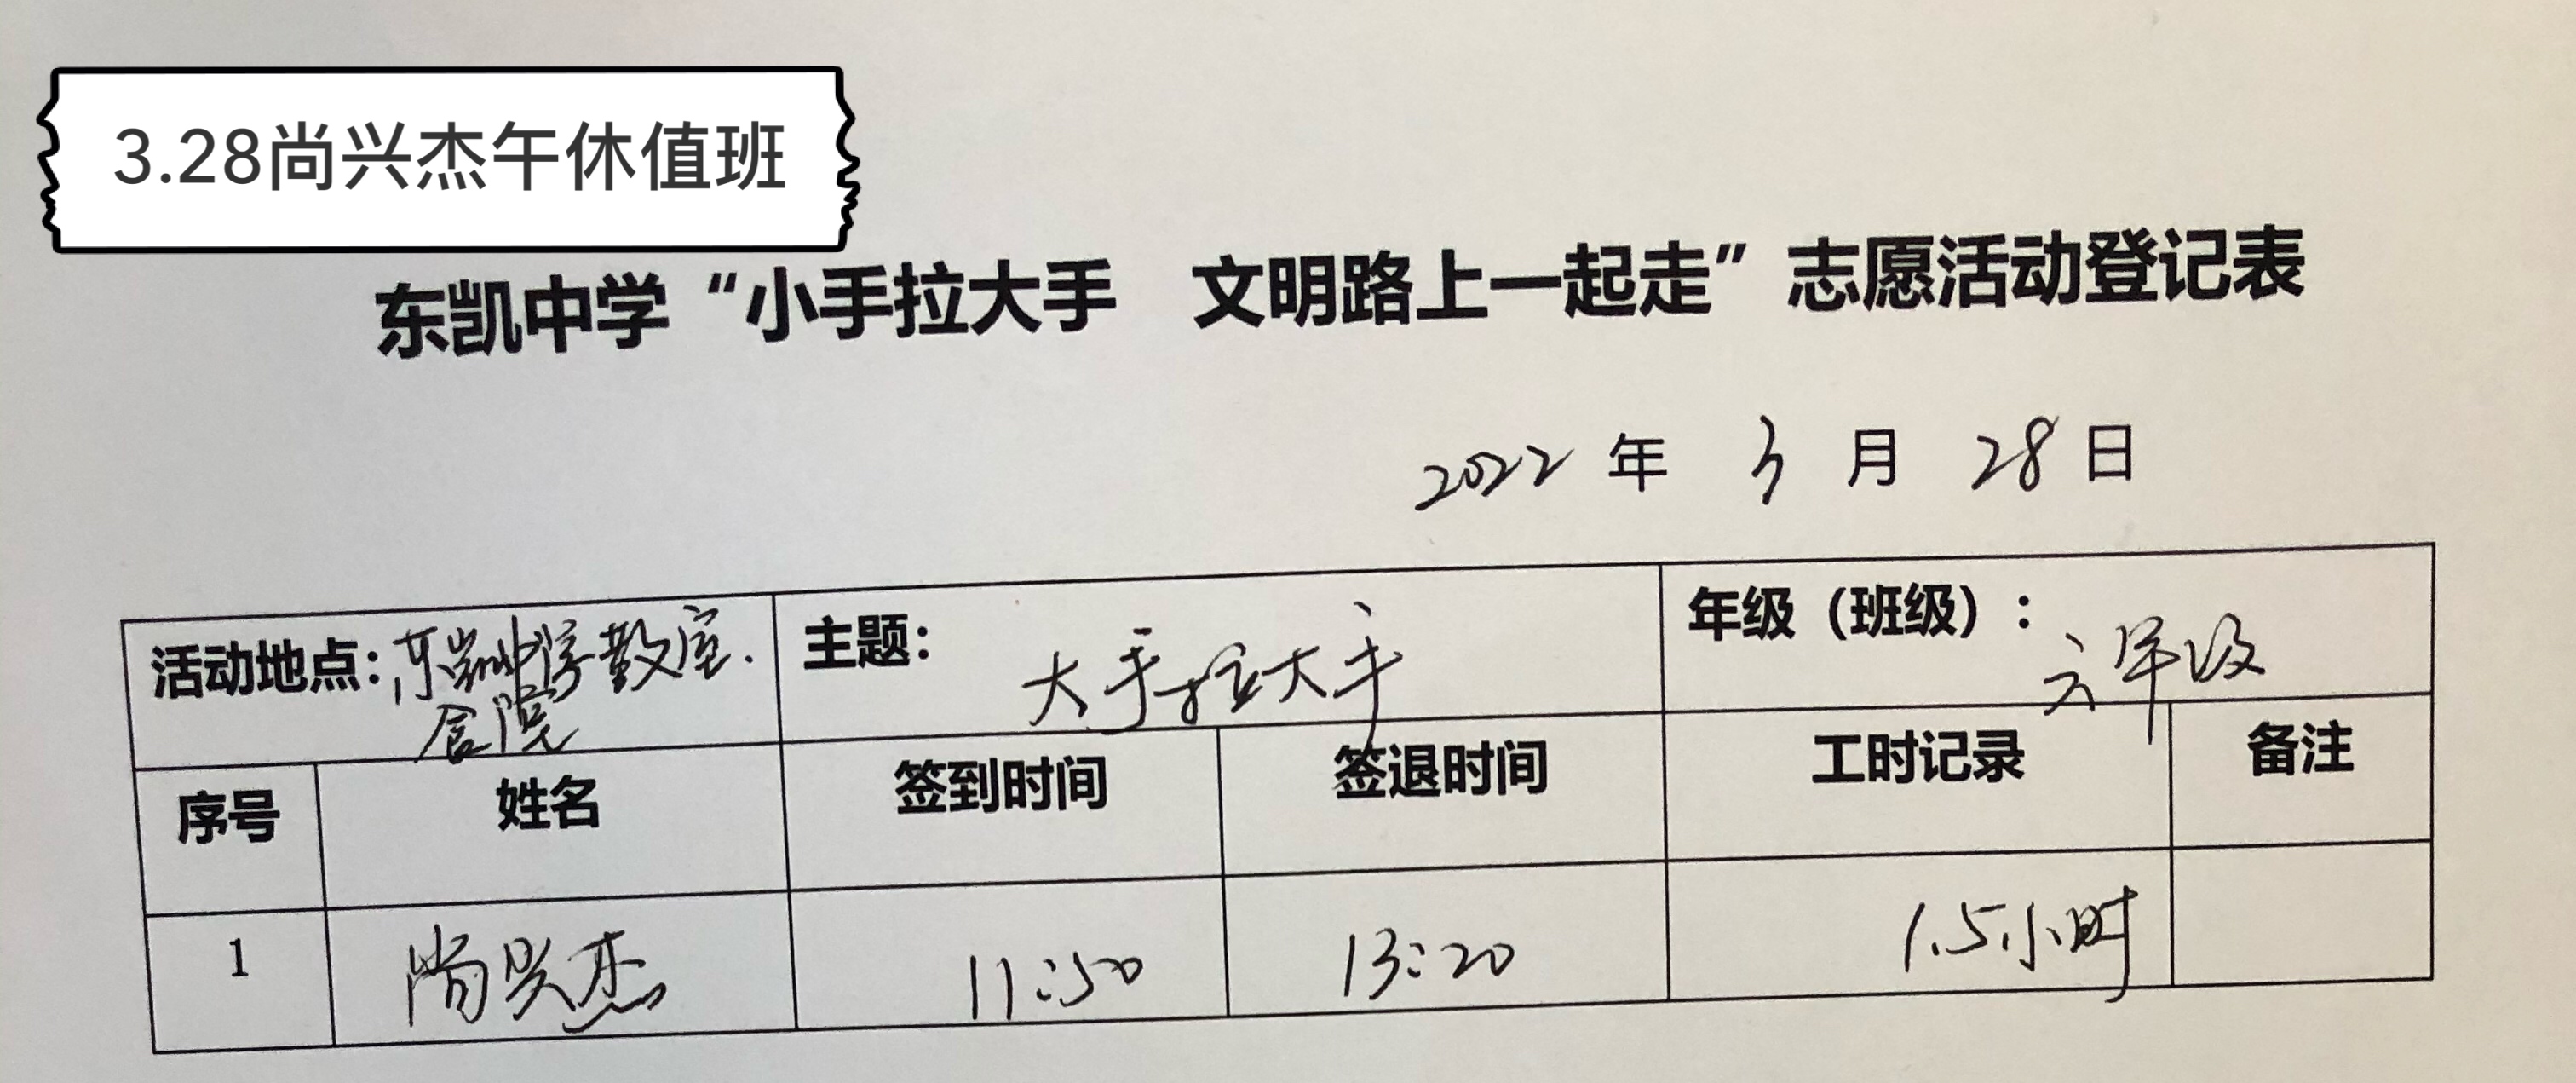 3.28尚兴杰午休值班
东凯中学“小手拉大手 文明路上一起走”志愿活动登记表
2022 年 3 月 28 日
活动地点：东凯中学教室.
主题： 大手拉大手
年级（班级）： 六年级
序号 姓名 签到时间 签退时间 工时记录 备注
1 尚兴杰 11:50 13:20 1.5小时